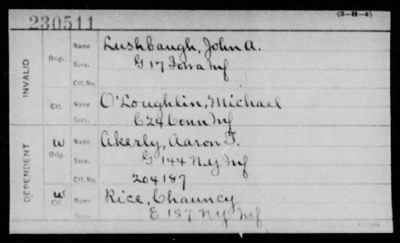 230511
(3-H-4)
INVALID
Orig.
Name Lushbaugh, John A.
Serv. G 17 Iowa Inf
Ctf. No.
Ctf.
Name O'Loughlin, Michael
Serv. C 24 Conn Inf
DEPENDENT
W
Orig.
Name Akerly, Aaron F.
Serv. G 144 N.Y. Inf
Ctf. No. 204187
W
Ctf.
Name Rice, Chauncy
Serv. E 137 N.Y. Inf